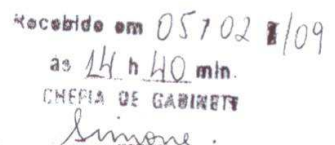 Recebido em 05/02/09
às 14 h 40 min.
CHEFIA DE GABINETE
Simone.